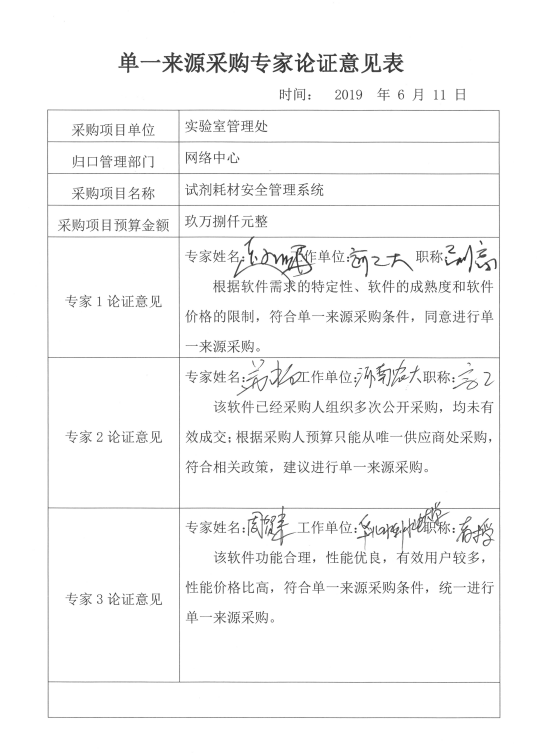 单一来源采购专家论证意见表
时间： 2019 年 6 月 11 日
采购项目单位 实验室管理处
归口管理部门 网络中心
采购项目名称 试剂耗材安全管理系统
采购项目预算金额 玖万捌仟元整
专家1论证意见
专家姓名: 工作单位: 职称:
根据软件需求的特定性、软件的成熟度和软件
价格的限制，符合单一来源采购条件，同意进行单
一来源采购。
专家2论证意见
专家姓名: 工作单位:河南农大职称:高工
该软件已经采购人组织多次公开采购，均未有
效成交;根据采购人预算只能从唯一供应商处采购，
符合相关政策，建议进行单一来源采购。
专家3论证意见
专家姓名: 工作单位: 职称:
该软件功能合理，性能优良，有效用户较多，
性能价格比高，符合单一来源采购条件，统一进行
单一来源采购。